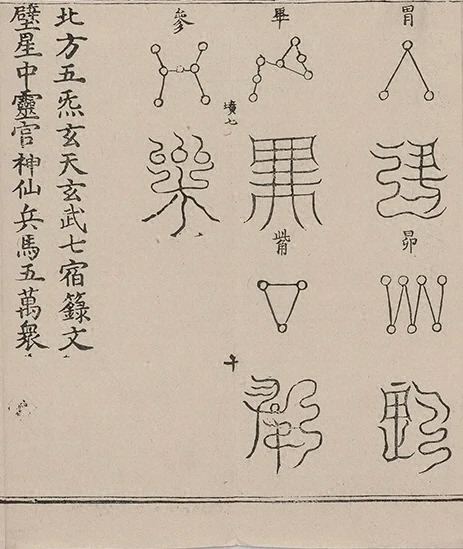 胃
昴
畢
觜
墳七
參
北方五炁玄天玄武七宿籙文
璧星中靈官神仙兵馬五萬衆